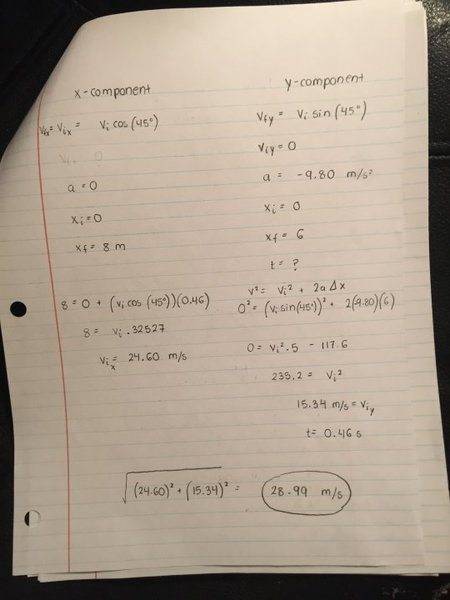 x-component
V₍fx₎= Vᵢₓ = Vᵢ cos(45°)
a = 0
xᵢ=0
x𝒻 = 8 m
8 = 0 + (Vᵢ cos(45°))(0.46)
8 = Vᵢ .32527
Vᵢₓ= 24.60 m/s
y-component
V𝒻y = Vᵢ sin(45°)
Vᵢy = 0
a = -9.80 m/s²
xᵢ = 0
x𝒻 = 6
t = ?
V² = Vᵢ² + 2aΔx
0² = (Vᵢ sin(45°))² + 2(-9.80)(6)
0 = Vᵢ² .5 - 117.6
235.2 = Vᵢ²
15.34 m/s = Vᵢy
t = 0.46 s
√(24.60)² + (15.34)² = 28.99 m/s